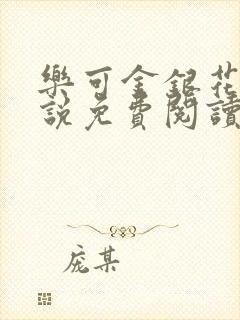 樂可金銀花
說免費閱讀
庞某